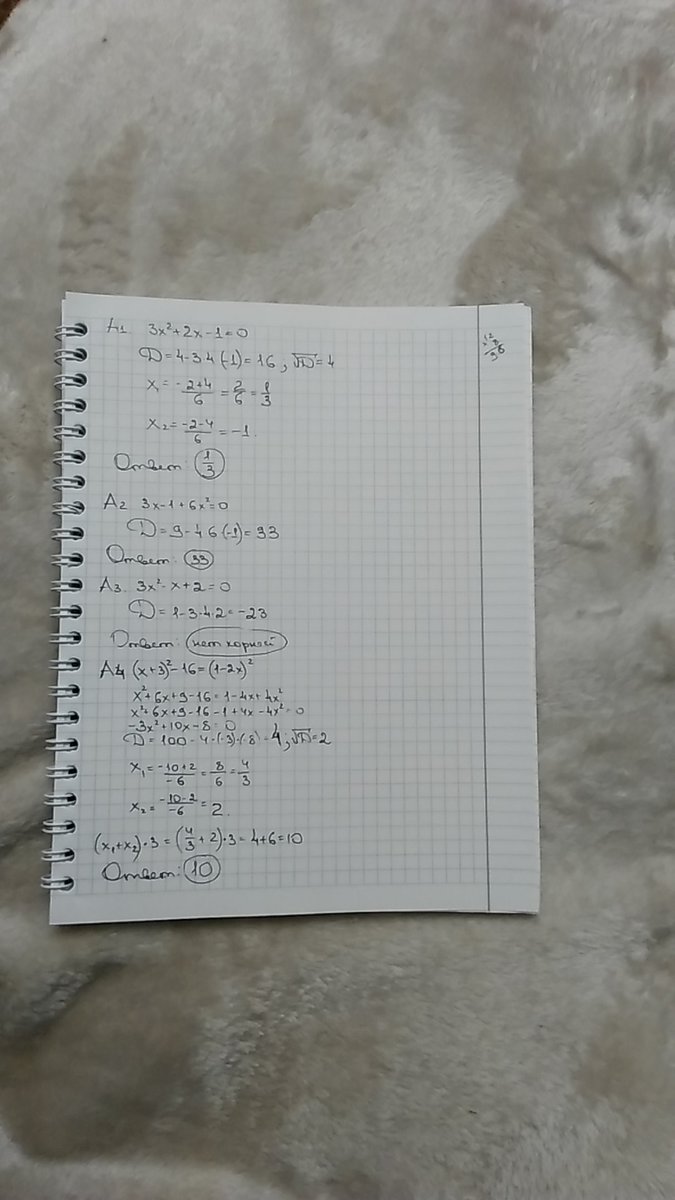 A1. 3x²+2x-1=0
D=4-3·4·(-1)=16; √D=4
x₁=-2+4/6=2/6=1/3
x₂=-2-4/6=-1.
Ответ: 1/3
A2 3x-1+6x²=0
D=9-4·6·(-1)=33
Ответ: 33
A3. 3x²-x+2=0
D=1-3·4·2=-23
Ответ: нет корней
A4 (x+3)²-16=(1-2x)²
x²+6x+9-16=1-4x+4x²
x²+6x+9-16-1+4x-4x²=0
-3x²+10x-8=0
D=100-4·(-3)·(-8)=4; √D=2
x₁=-10+2/-6=8/6=4/3
x₂=-10-2/-6=2.
(x₁+x₂)·3=(4/3+2)·3=4+6=10
Ответ: 10